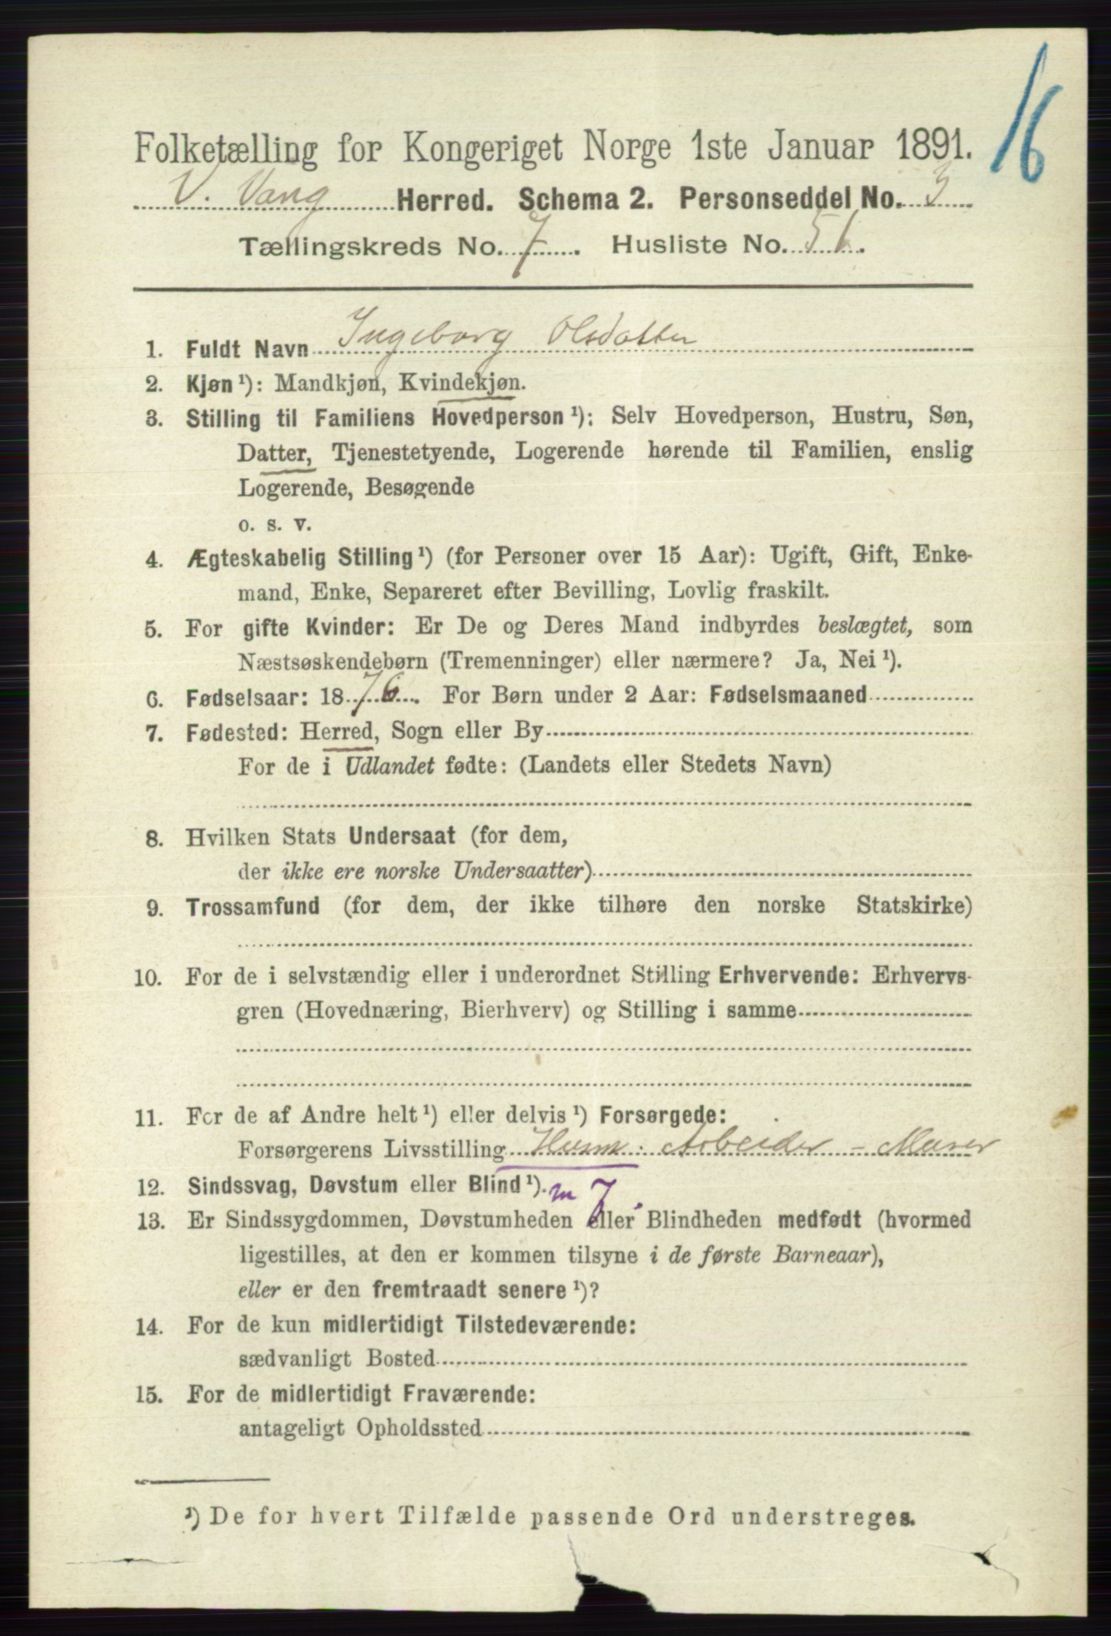 16
Folketælling for Kongeriget Norge 1ste Januar 1891.
V. Vang Herred. Schema 2. Personseddel No. 3
Tællingskreds No. 7. Husliste No. 51.
1. Fuldt Navn Ingeborg Olsdatter
2. Kjøn ¹): Mandkjøn, Kvindekjøn.
3. Stilling til Familiens Hovedperson ¹): Selv Hovedperson, Hustru, Søn,
Datter, Tjenestetyende, Logerende hørende til Familien, enslig
Logerende, Besøgende
o. s. v.
4. Ægteskabelig Stilling ¹) (for Personer over 15 Aar): Ugift, Gift, Enke-
mand, Enke, Separeret efter Bevilling, Lovlig fraskilt.
5. For gifte Kvinder: Er De og Deres Mand indbyrdes beslægtet, som
Næstsøskendebørn (Tremenninger) eller nærmere? Ja, Nei ¹).
6. Fødselsaar: 1876. For Børn under 2 Aar: Fødselsmaaned
7. Fødested: Herred, Sogn eller By
For de i Udlandet fødte: (Landets eller Stedets Navn)
8. Hvilken Stats Undersaat (for dem,
der ikke ere norske Undersaatter)
9. Trossamfund (for dem, der ikke tilhøre den norske Statskirke)
10. For de i selvstændig eller i underordnet Stilling Erhvervende: Erhvervs-
gren (Hovednæring, Bierhverv) og Stilling i samme
11. For de af Andre helt ¹) eller delvis ¹) Forsørgede:
Forsørgerens Livsstilling Husm. Arbeider - Murer
12. Sindssvag, Døvstum eller Blind ¹). m 7.
13. Er Sindssygdommen, Døvstumheden eller Blindheden medfødt (hvormed
ligestilles, at den er kommen tilsyne i de første Barneaar),
eller er den fremtraadt senere ¹)?
14. For de kun midlertidigt Tilstedeværende:
sædvanligt Bosted
15. For de midlertidigt Fraværende:
antageligt Opholdssted
¹) De for hvert Tilfælde passende Ord understreges.